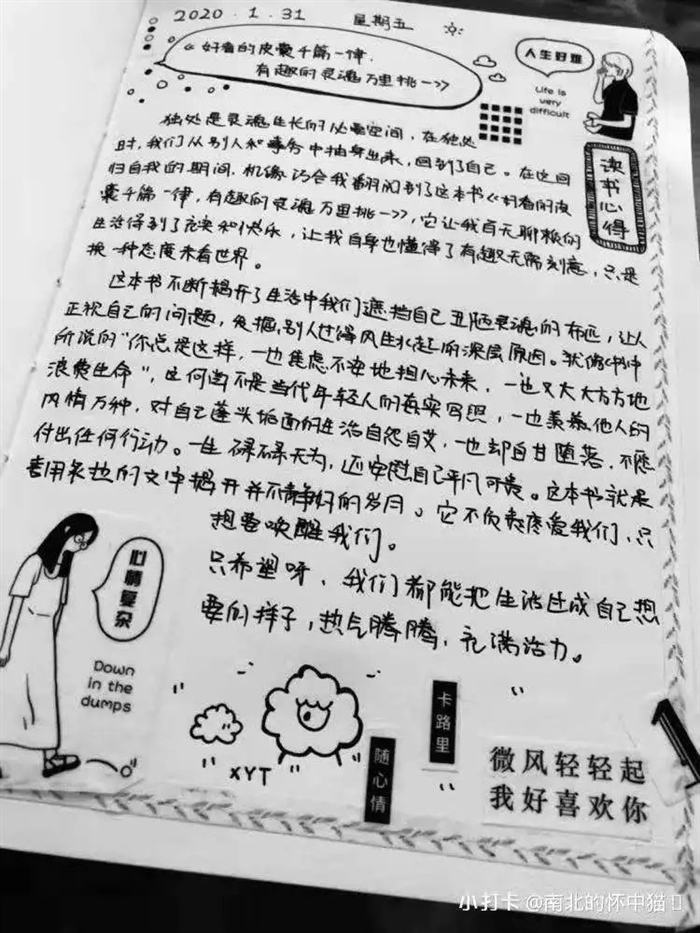 2020.1.31 星期五
《好看的皮囊千篇一律,
有趣的灵魂万里挑一》
人生好难
Life is
very
difficult
读书心得
独处是灵魂生长的必要空间,在独处
时,我们从别人和事务中抽身出来,回到了自己。在这回
归自我的期间,机缘巧合我翻阅到了这本书《好看的皮
囊千篇一律,有趣的灵魂万里挑一》,它让我百无聊赖的
生活得到了充实和快乐,让我自身也懂得了有趣无需刻意,只是
换一种态度来看世界。
这本书不断揭开了生活中我们遮挡自己丑陋灵魂的布匹,让人
正视自己的问题,发掘别人过得风生水起的深层原因。就像书中
所说的“你总是这样,一边焦虑不安地担心未来,一边又大大方方地
浪费生命”,这何尝不是当代年轻人的真实写照,一边羡慕他人的
风情万种,对自己蓬头垢面的生活自怨自艾,一边却自甘堕落,不愿
付出任何行动。一生碌碌无为,还安慰自己平凡可贵。这本书就是
善用灸热的文字揭开并不静好的岁月。它不负责疼爱我们,只
想要唤醒我们。
只希望呀,我们都能把生活过成自己想
要的样子,热气腾腾,充满活力。
心情复杂
Down
in the
dumps
XYT
随心情
卡路里
1
微风轻轻起
我好喜欢你
小打卡 @南北的怀中猫